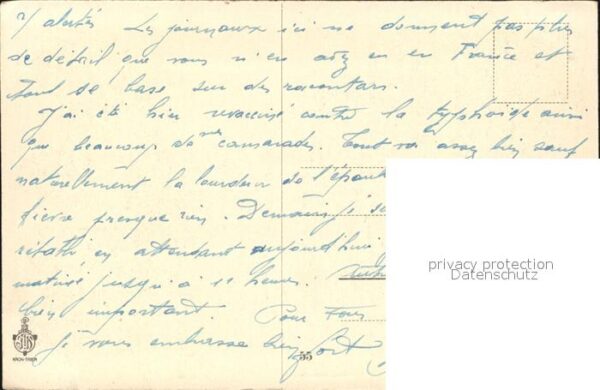 Les journaux ici ne donnent pas plus
de détail que vous n'en avez eu en France et
tout se base sur des racontars.
J'ai été hier revacciné contre la typhoïde ainsi
que beaucoup de mes camarades. Tout va assez bien sauf
naturellement la lourdeur de l'épaule
fièvre presque rien. Demain je
en attendant aujourd'hui
matinée jusqu'à 11 heures.
bien important. Pour Tous
je vous embrasse bien fort
55
privacy protection
Datenschutz